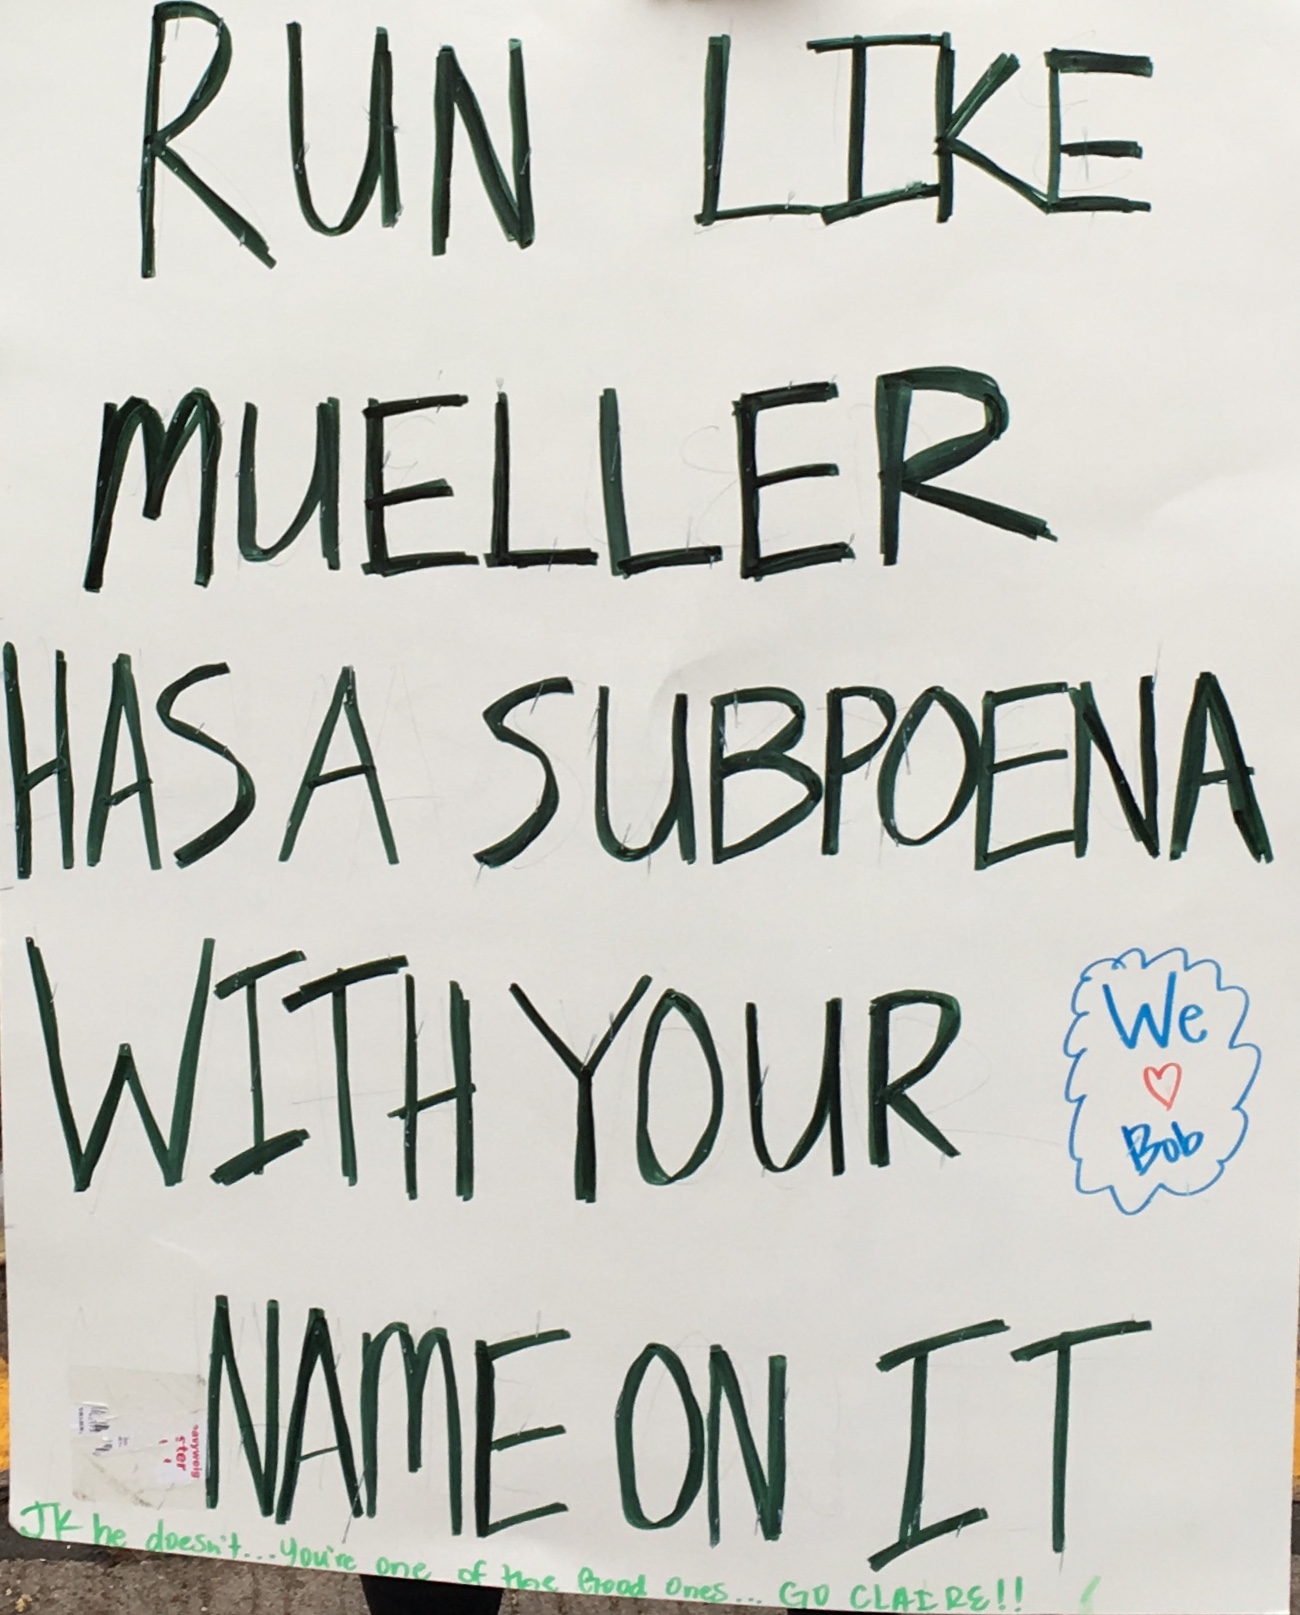 RUN LIKE
MUELLER
HAS A SUBPOENA
WITH YOUR
We
♡
Bob
NAME ON IT
avyweig
ster
JK he doesn't... You're one of the Good Ones... GO CLAIRE!!